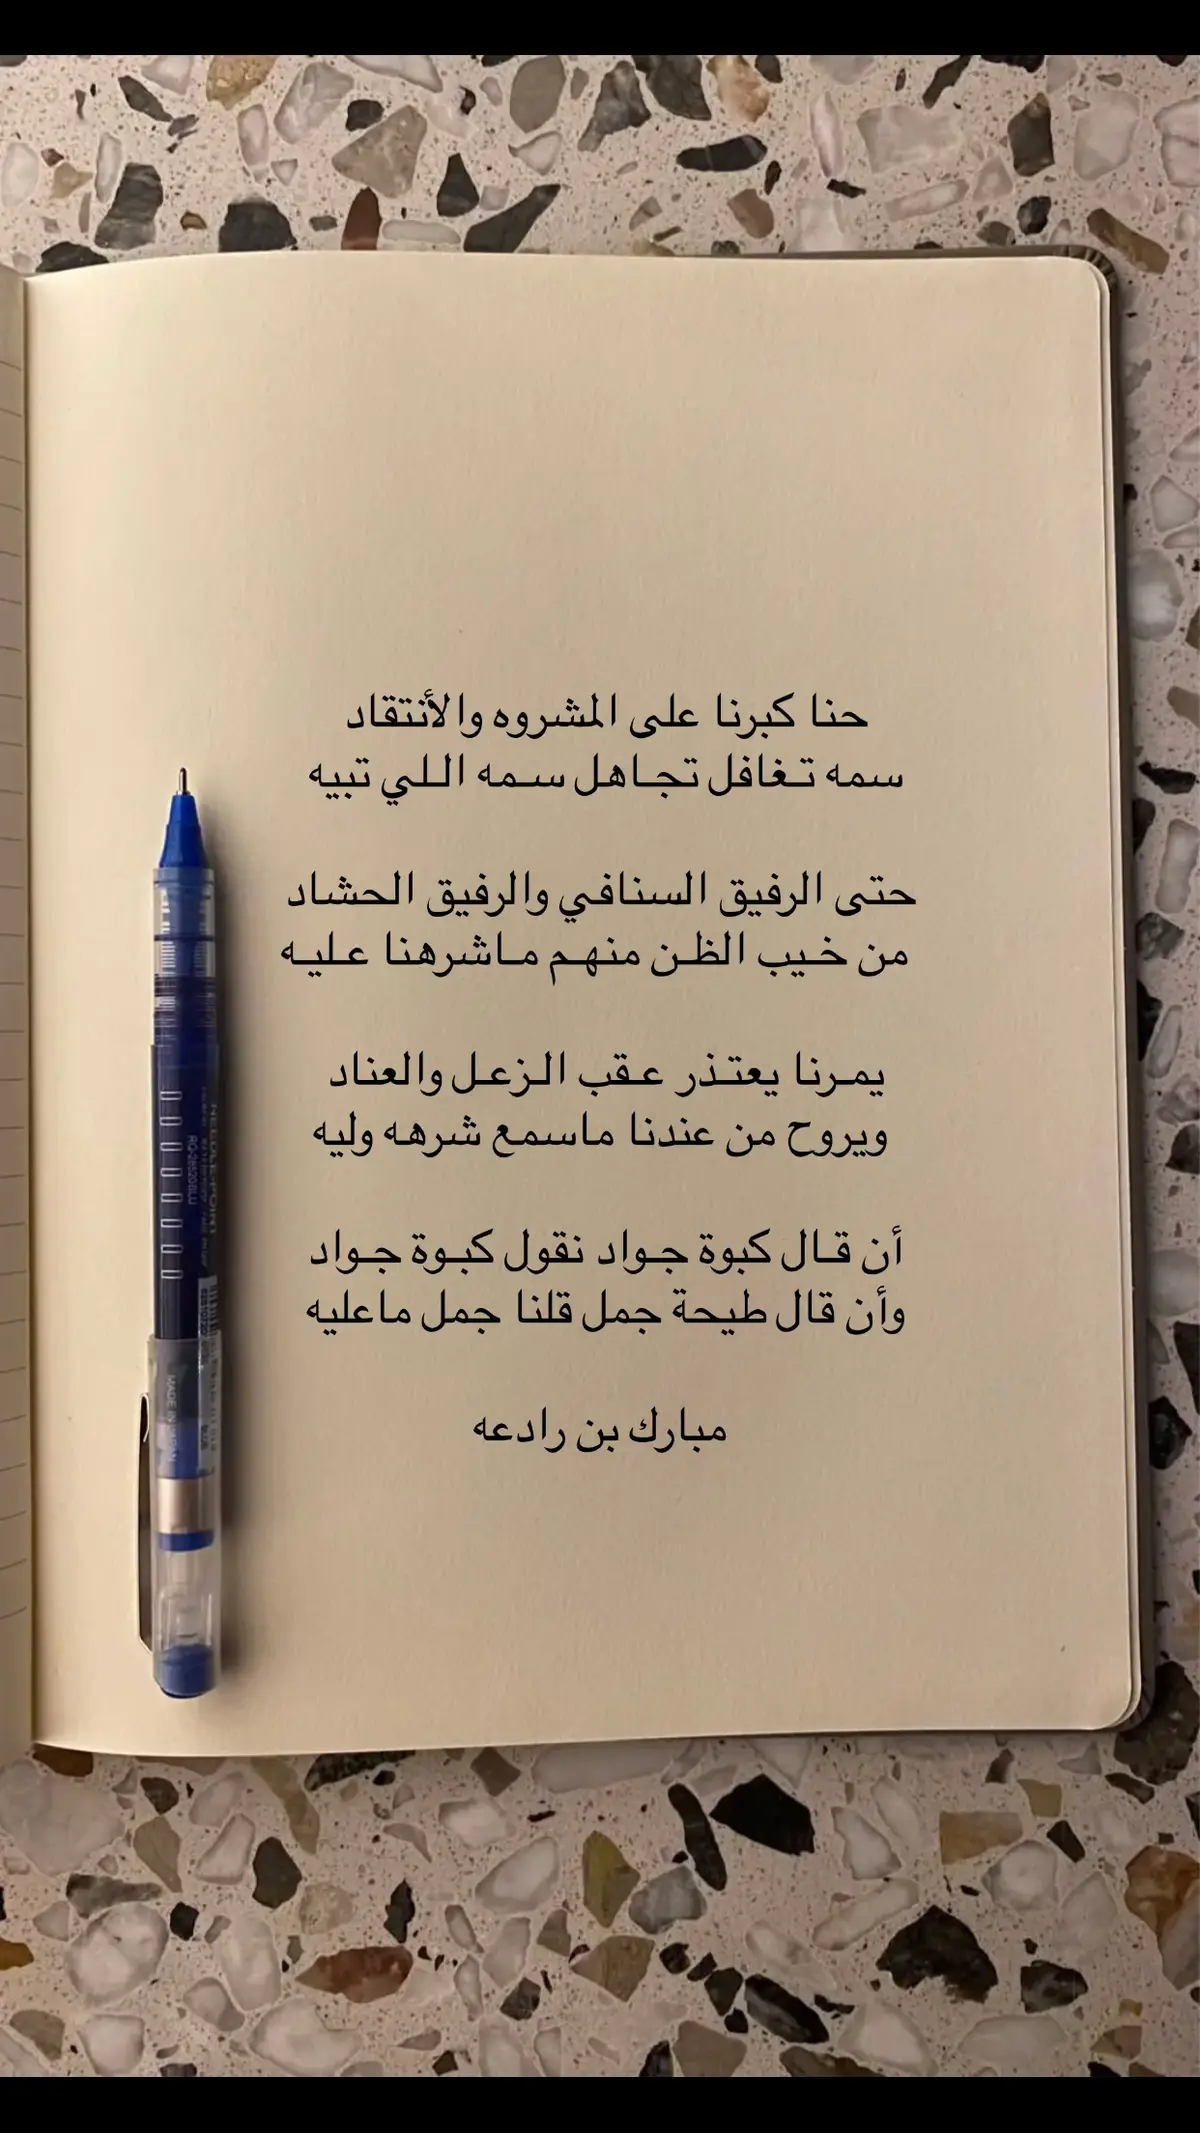 حنا كبرنا على المشروه والأنتقاد
سمه تغافل تجاهل سمه اللي تبيه
حتى الرفيق السنافي والرفيق الحشاد
من خيب الظن منهم ماشرهنا عليه
يمرنا يعتذر عقب الزعل والعناد
ويروح من عندنا ماسمع شرهه وليه
أن قال كبوة جواد نقول كبوة جواد
وأن قال طيحة جمل قلنا جمل ماعليه
مبارك بن رادعه
NEEDLE-POINT
MADE IN